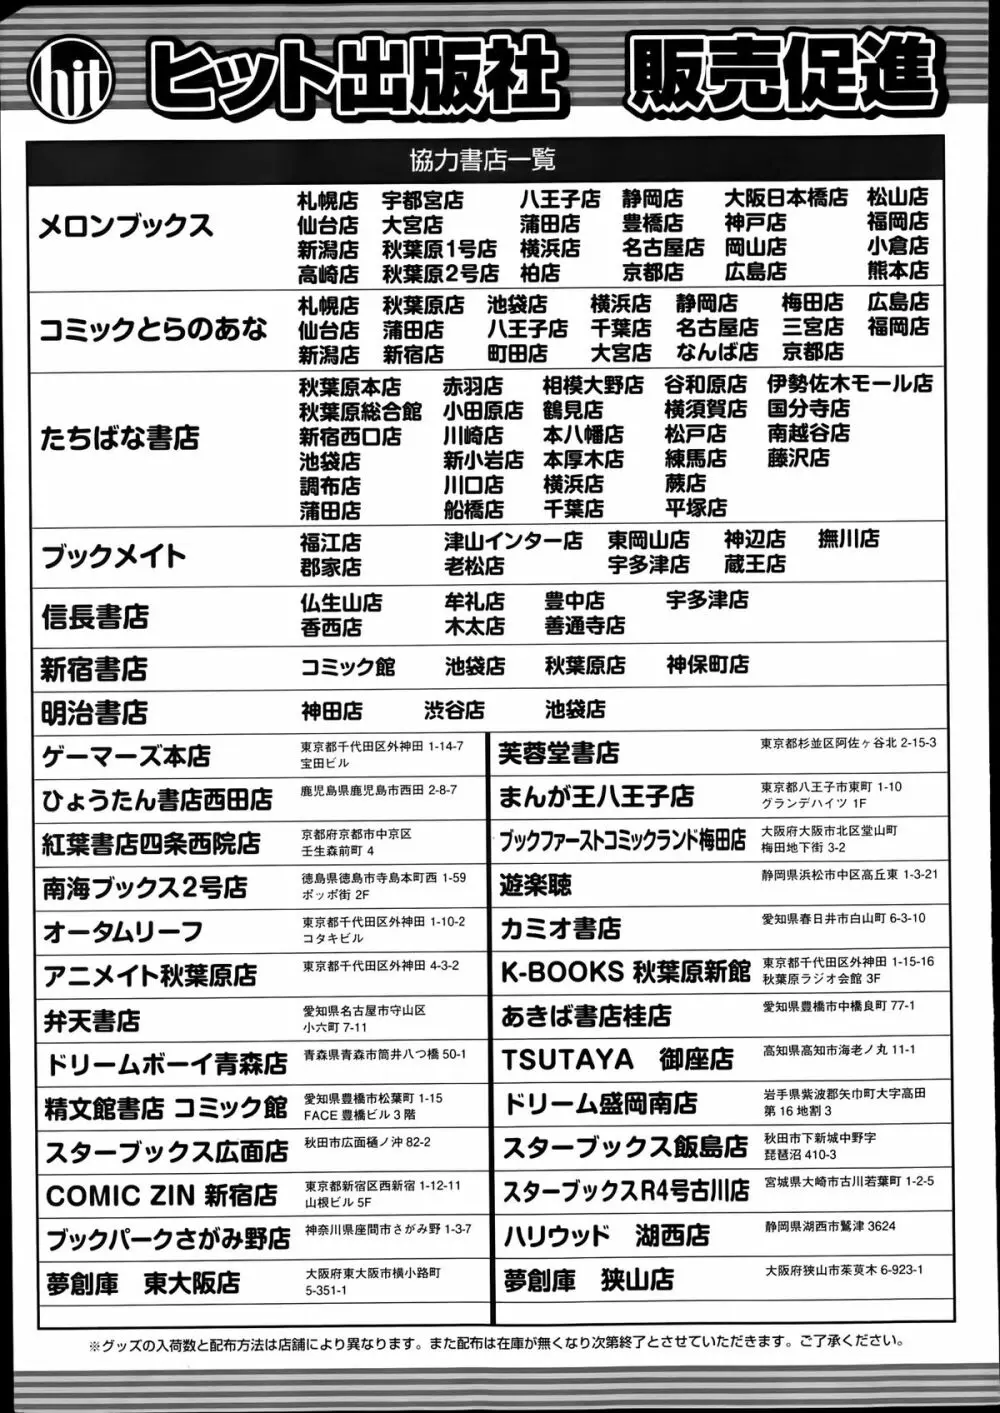 hit ヒット出版社 販売促進
協力書店一覧
メロンブックス
札幌店 宇都宮店 八王子店 静岡店 大阪日本橋店 松山店
仙台店 大宮店 蒲田店 豊橋店 神戸店 福岡店
新潟店 秋葉原1号店 横浜店 名古屋店 岡山店 小倉店
高崎店 秋葉原2号店 柏店 京都店 広島店 熊本店
コミックとらのあな
札幌店 秋葉原店 池袋店 横浜店 静岡店 梅田店 広島店
仙台店 蒲田店 八王子店 千葉店 名古屋店 三宮店 福岡店
新潟店 新宿店 町田店 大宮店 なんば店 京都店
たちばな書店
秋葉原本店 赤羽店 相模大野店 谷和原店 伊勢佐木モール店
秋葉原総合館 小田原店 鶴見店 横須賀店 国分寺店
新宿西口店 川崎店 本八幡店 松戸店 南越谷店
池袋店 新小岩店 本厚木店 練馬店 藤沢店
調布店 川口店 横浜店 蕨店
蒲田店 船橋店 千葉店 平塚店
ブックメイト
福江店 津山インター店 東岡山店 神辺店 撫川店
郡家店 老松店 宇多津店 蔵王店
信長書店
仏生山店 牟礼店 豊中店 宇多津店
香西店 木太店 善通寺店
新宿書店
コミック館 池袋店 秋葉原店 神保町店
明治書店
神田店 渋谷店 池袋店
ゲーマーズ本店
東京都千代田区外神田 1-14-7
宝田ビル
芙蓉堂書店
東京都杉並区阿佐ヶ谷北 2-15-3
ひょうたん書店西田店
鹿児島県鹿児島市西田 2-8-7
まんが王八王子店
東京都八王子市東町 1-10
グランデハイツ 1F
紅葉書店四条西院店
京都府京都市中京区
壬生森前町 4
ブックファーストコミックランド梅田店
大阪府大阪市北区堂山町
梅田地下街 3-2
南海ブックス2号店
徳島県徳島市寺島本町西 1-59
ポッポ街 2F
遊楽聴
静岡県浜松市中区高丘東 1-3-21
オータムリーフ
東京都千代田区外神田 1-10-2
コタキビル
カミオ書店
愛知県春日井市白山町 6-3-10
アニメイト秋葉原店
東京都千代田区外神田 4-3-2
K-BOOKS 秋葉原新館
東京都千代田区外神田 1-15-16
秋葉原ラジオ会館 3F
弁天書店
愛知県名古屋市守山区
小六町 7-11
あきば書店桂店
愛知県豊橋市中橋良町 77-1
ドリームボーイ青森店
青森県青森市筒井八つ橋 50-1
TSUTAYA 御座店
高知県高知市海老ノ丸 11-1
精文館書店 コミック館
愛知県豊橋市松葉町 1-15
FACE 豊橋ビル 3 階
ドリーム盛岡南店
岩手県紫波郡矢巾町大字高田
第 16 地割 3
スターブックス広面店
秋田市広面樋ノ沖 82-2
スターブックス飯島店
秋田市下新城中野字
琵琶沼 410-3
COMIC ZIN 新宿店
東京都新宿区西新宿 1-12-11
山根ビル 5F
スターブックスR4号古川店
宮城県大崎市古川若葉町 1-2-5
ブックパークさがみ野店
神奈川県座間市さがみ野 1-3-7
ハリウッド 湖西店
静岡県湖西市鷲津 3624
夢創庫 東大阪店
大阪府東大阪市横小路町
5-351-1
夢創庫 狭山店
大阪府狭山市茱萸木 6-923-1
※グッズの入荷数と配布方法は店舗により異なります。また配布は在庫が無くなり次第終了とさせていただきます。ご了承ください。